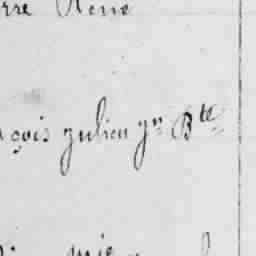 rre René
çois julien jn Bte